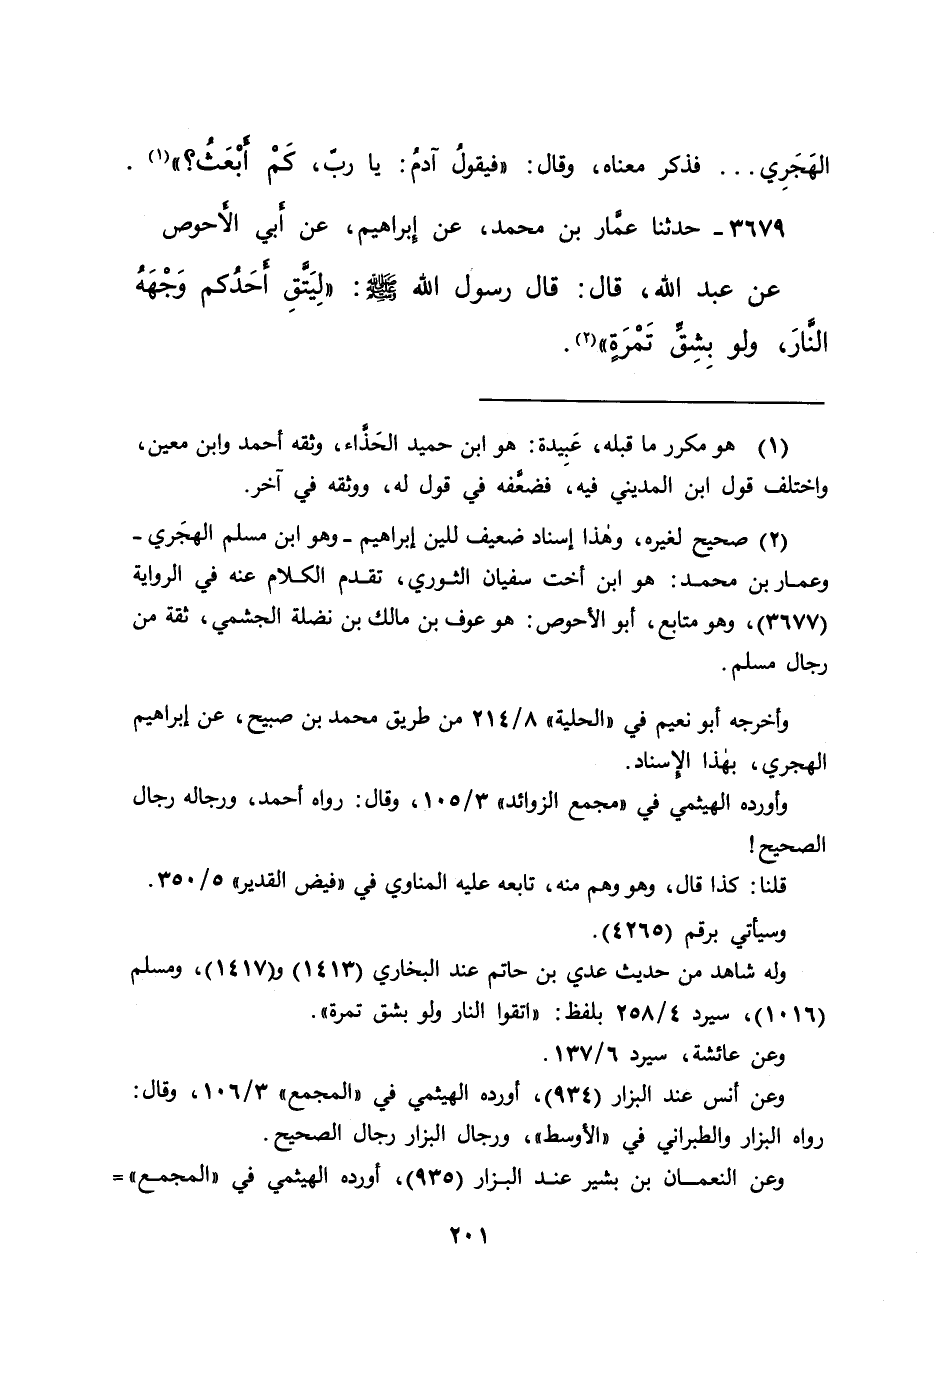 الهَجَرِي... فذكر معناه، وقال: «فيقولُ آدمُ: يا ربّ، كَمْ أَبْعَثُ؟»(١).
٣٦٧٩ـ حدثنا عمَّار بن محمد، عن إبراهيم، عن أبي الأحوص
عن عبد الله، قال: قال رسول الله ﷺ: «لِيَتَّقِ أَحَدُكم وَجْهَهُ
النَّارَ، ولو بِشِقِّ تَمْرَةٍ»(٢).
(١) هو مكرر ما قبله، عَبِيدة: هو ابن حميد الحَذَّاء، وثقه أحمد وابن معين،
واختلف قول ابن المديني فيه، فضعَّفه في قول له، ووثقه في آخر.
(٢) صحيح لغيره، وهٰذا إسناد ضعيف للين إبراهيم ـ وهو ابن مسلم الهجَري ـ
وعمار بن محمد: هو ابن أخت سفيان الثوري، تقدم الكلام عنه في الرواية
(٣٦٧٧)، وهو متابع، أبو الأحوص: هو عوف بن مالك بن نضلة الجشمي، ثقة من
رجال مسلم.
وأخرجه أبو نعيم في «الحلية» ٢١٤/٨ من طريق محمد بن صبيح، عن إبراهيم
الهجري، بهٰذا الإسناد.
وأورده الهيثمي في «مجمع الزوائد» ١٠٥/٣، وقال: رواه أحمد، ورجاله رجال
الصحيح!
قلنا: كذا قال، وهو وهم منه، تابعه عليه المناوي في «فيض القدير» ٣٥٠/٥.
وسيأتي برقم (٤٢٦٥).
وله شاهد من حديث عدي بن حاتم عند البخاري (١٤١٣) و(١٤١٧)، ومسلم
(١٠١٦)، سيرد ٢٥٨/٤ بلفظ: «اتقوا النار ولو بشق تمرة».
وعن عائشة، سيرد ١٣٧/٦.
وعن أنس عند البزار (٩٣٤)، أورده الهيثمي في «المجمع» ١٠٦/٣، وقال:
رواه البزار والطبراني في «الأوسط»، ورجال البزار رجال الصحيح.
وعن النعمان بن بشير عند البزار (٩٣٥)، أورده الهيثمي في «المجمع»=
٢٠١